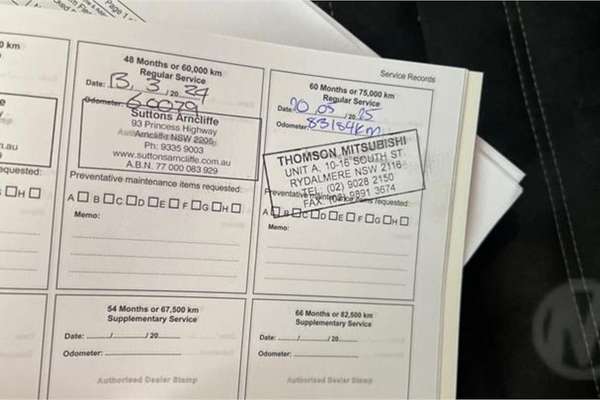 Page 1
Service Records
0 km
e
n.au
equested:
H
48 Months or 60,000 km
Regular Service
Date: 13, 3 / 20 24
Odometer: 60079
Suttons Arncliffe
93 Princess Highway
Arncliffe NSW 2205
Ph: 9335 9003
www.suttonsarncliffe.com.au
A.B.N. 77 000 083 929
Preventative maintenance items requested:
A B C D E F G H
Memo:
60 Months or 75,000 km
Regular Service
Date: 20, 05 / 20 25
Odometer: 83184km
THOMSON MITSUBISHI
UNIT A, 10-16 SOUTH ST.
RYDALMERE NSW 2116
TEL: (02) 9028 2150
FAX: (02) 9891 3674
Preventative maintenance items requested:
A B C D E F G H
Memo:
54 Months or 67,500 km
Supplementary Service
Date: / / 20
Odometer:
Authorised Dealer Stamp
66 Months or 82,500 km
Supplementary Service
Date: / / 20
Odometer:
Authorised Dealer Stamp